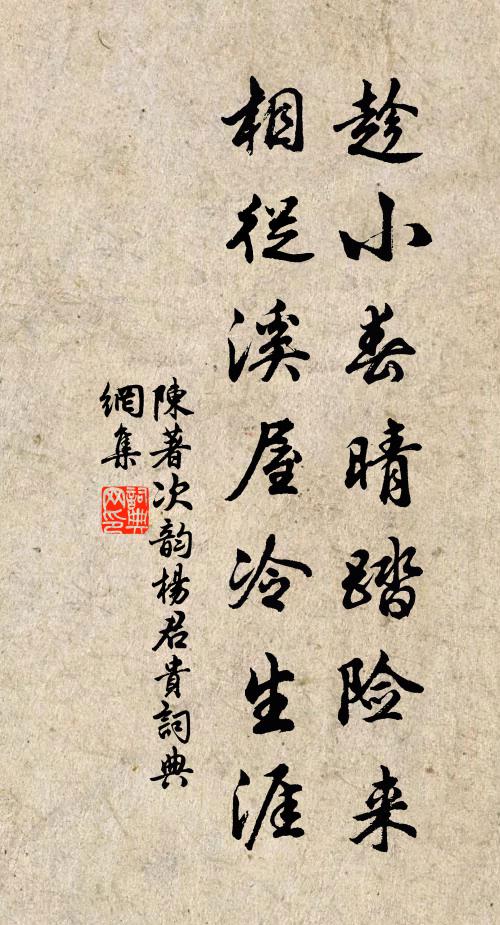 趁小春晴踏险来
相從溪屋冷生涯
陳著次韵楊君貴詞典
網集
詞典
网印